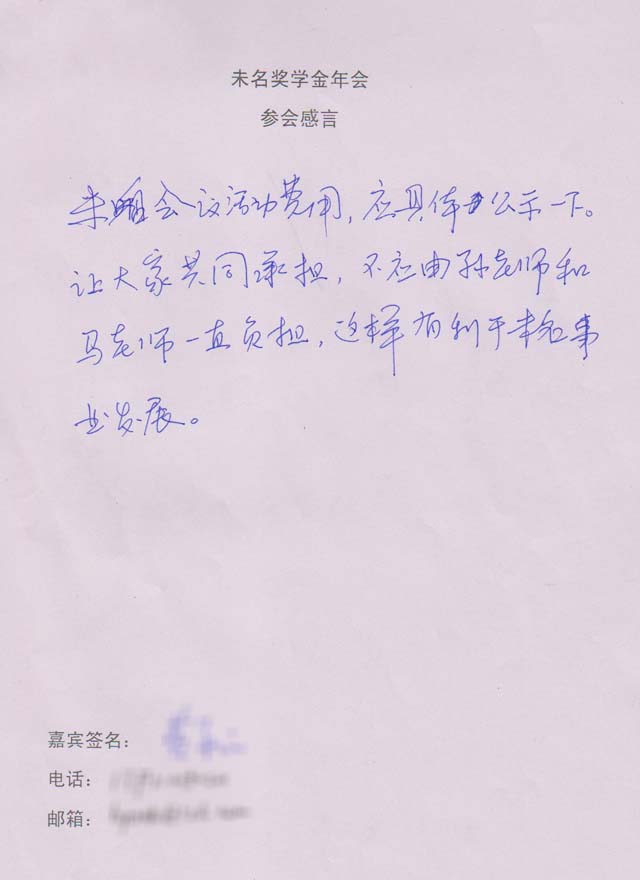 未名奖学金年会
参会感言
未名会议活动费用，应具体公示一下。
让大家共同承担，不应由孙老师和
马老师一直负担，这样有利于未名事
业发展。
嘉宾签名：
电话：
邮箱：